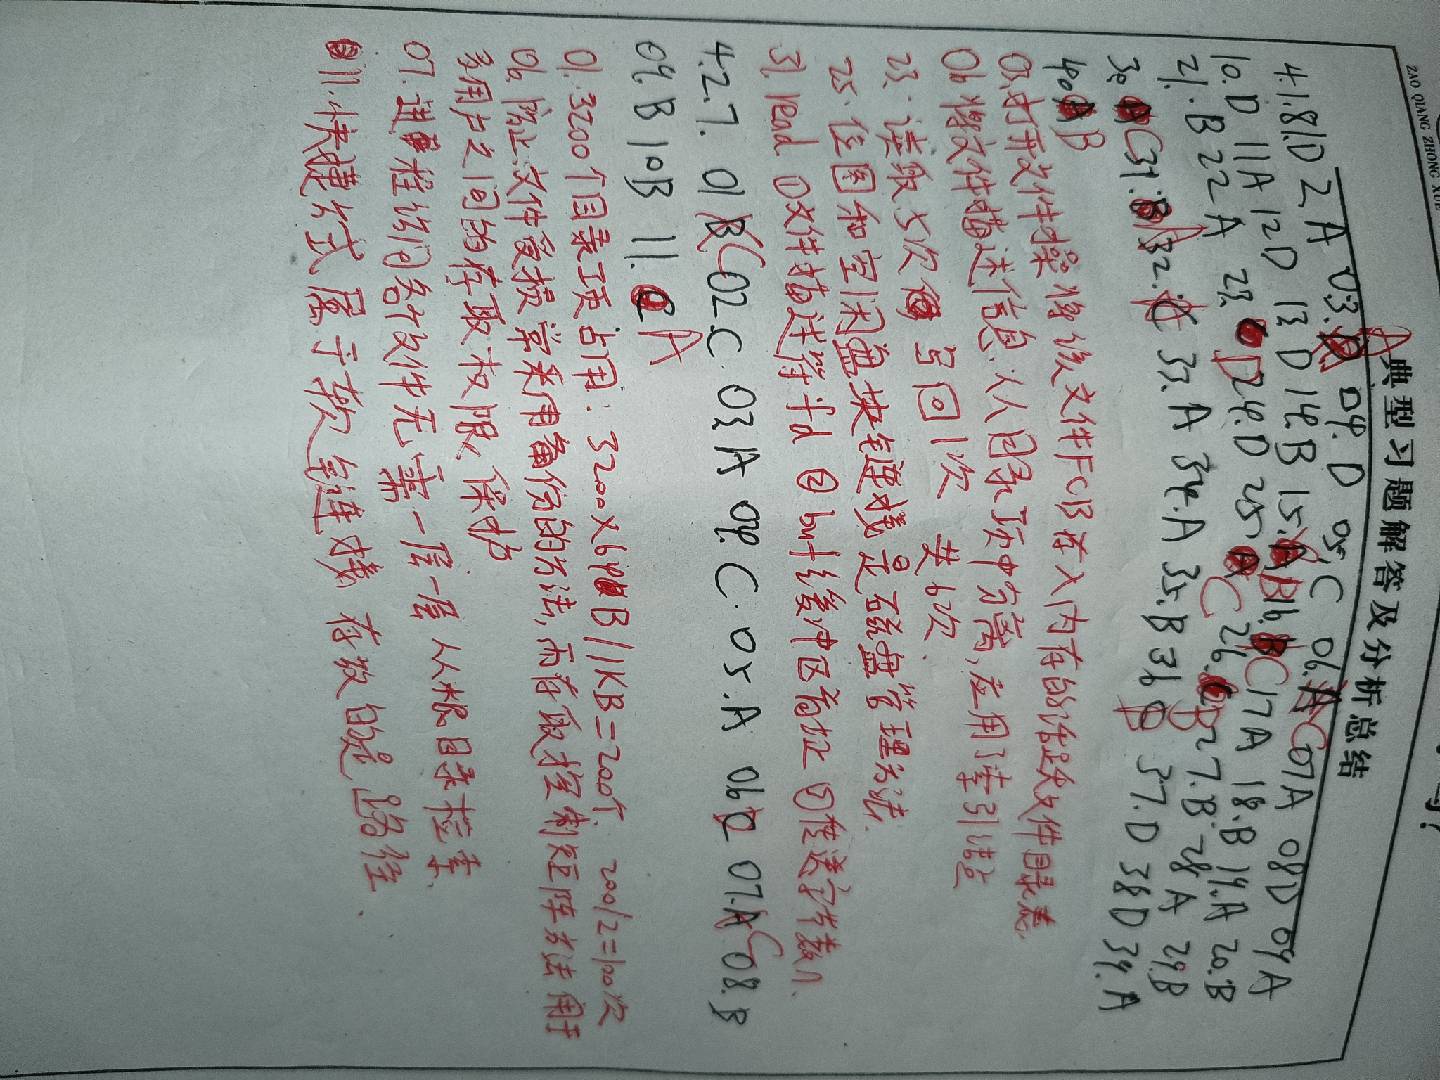 ZAO QIANG ZHONG XUE
典型习题解答及分析总结
4.1.8 1.D 2.A 03.A 04.D 05.C 06.C 07A 08D 09A
10.D 11A 12D 13.D 14.B 15.B 16.C 17A 18.B 19.A 20.B
21.B 22A 23.D 24.D 25 C 26.B 27.B 28A 29B
30 C 31.A 32. 33.A 34.A 35.B 36 37.D 38D 39.A
40 B
03.打开文件操将该文件FCB存入内存的活跃文件目录表.
06 将文件描述信息从目录项中分离,应用了索引结点
23.读取5次 写回1次 共6次.
25.位图和空闲盘块链连接是磁盘管理方法.
31.read ①文件描述符fd ②buf缓冲区首址 ③传送字节数n.
4.2.7. 01 C 02.C 03.A 04.C 05.A 06 07.C 08.B
09.B 10B 11.A
01.3200个目录项占用:3200×64B/1KB=200个 200/2=100次
06.防止文件受损常采用备份的方法,而存取控制矩阵方法用于
多用户之间的存取权限保护
07.进程访问各文件无需一层一层从根目录检索.
11.快捷方式属于软链连接 存放的是路径.